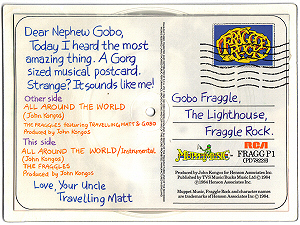 Dear Nephew Gobo,
Today I heard the most
amazing thing. A Gorg
sized musical postcard.
Strange? It sounds like me!
Other side
ALL AROUND THE WORLD
(John Kongos)
THE FRAGGLES featuring TRAVELLING MATT & GOBO
Produced by John Kongos
This side
ALL AROUND THE WORLD/Instrumental
(John Kongos)
THE FRAGGLES
Produced by John Kongos
Love, Your Uncle
Travelling Matt
FRAGGLE
ROCK
Gobo Fraggle,
The Lighthouse,
Fraggle Rock.
MUPPET MUSIC
RCA
FRAGG P1
Produced by John Kongos for Henson Associates Inc.
Published by TVS Music/Bucks Music Ltd ℗ 1984
©1984 Henson Associates Inc.
Muppet Music, Fraggle Rock and character names
are trademarks of Henson Associates Inc © 1984